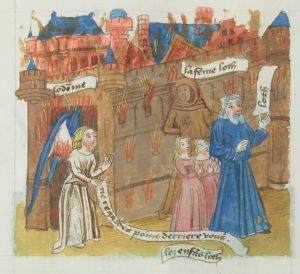 sodome
la feme loth
loth
ne regardes point derriere vous.
les enfās loth